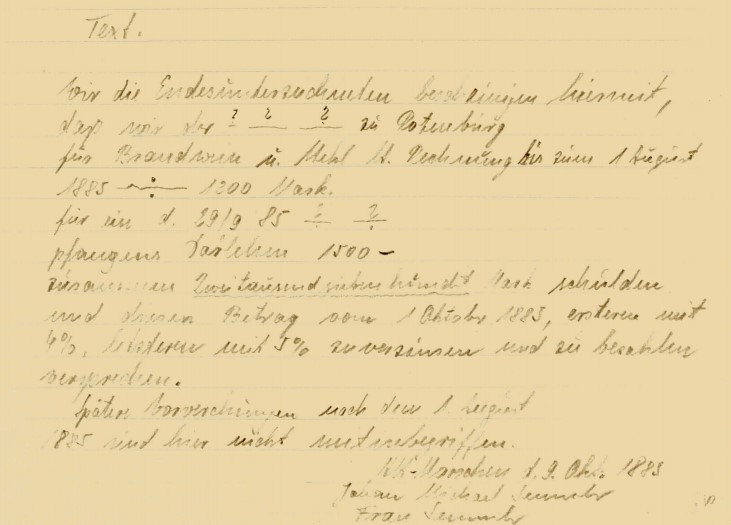 Text.
Wir die Endesunterzeichneten bescheinigen hiermit,
daß wir der ? ? ? zu Rotenburg
für Brandwein u. Mehl lt. Rechnung bis zum 1 August
1885 1200 Mark.
für ein d. 29/9 85 ? ?
pfangens Darlehen 1500 –
zusammen Zweitausendsiebenhundert Mark schulden
und diesen Betrag vom 1 Oktobr 1885, ersteren mit
4%, letzteren mit 5% zu verzinsen und zu bezahlen
versprechen.
spätere Vorverehungen nach dem 1. August
1885 sind hier nicht mit inbegriffen.
Morschen d. 9. Okt. 1885
Johan Michael
Frau